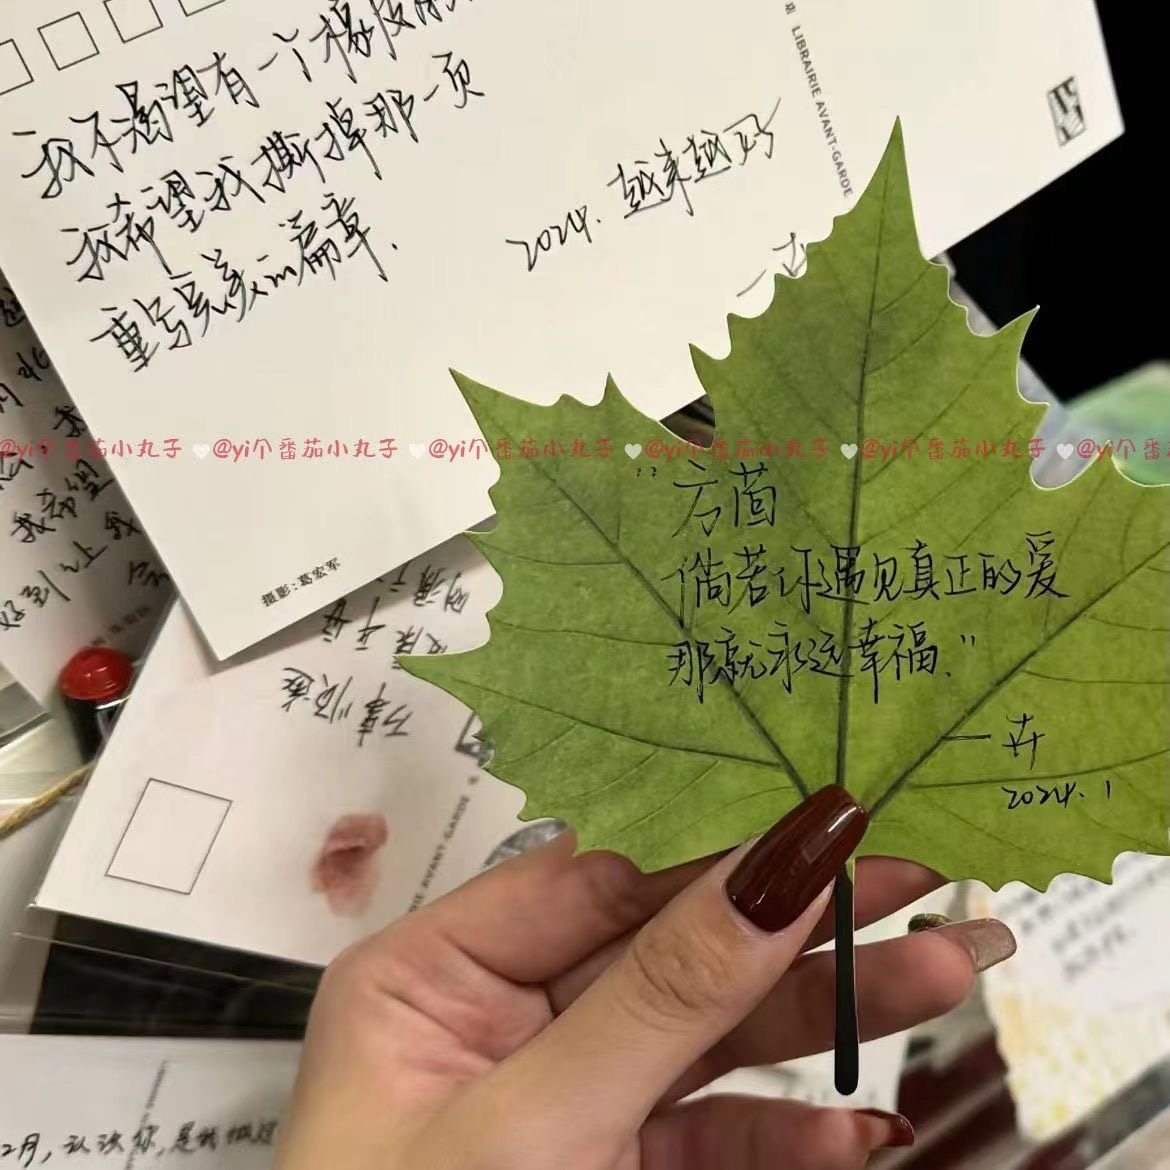 我不渴望有一个橡皮
我希望我撕掉那一页
重写完美的篇章.
2024. 越来越巧
LIBRAIRIE AVANT-GARDE
@yi个番茄小丸子 @yi个番茄小丸子 @yi个番茄小丸子 @yi个番茄小丸子 @yi个番茄小丸子 @yi个番茄小丸子
我希望
好到
摄影:葛宏军
万事顺遂
AVANT-GARDE
"方茴
倘若你遇见真正的爱
那就永远幸福."
一卉
2024.1
2月,认识你,是我